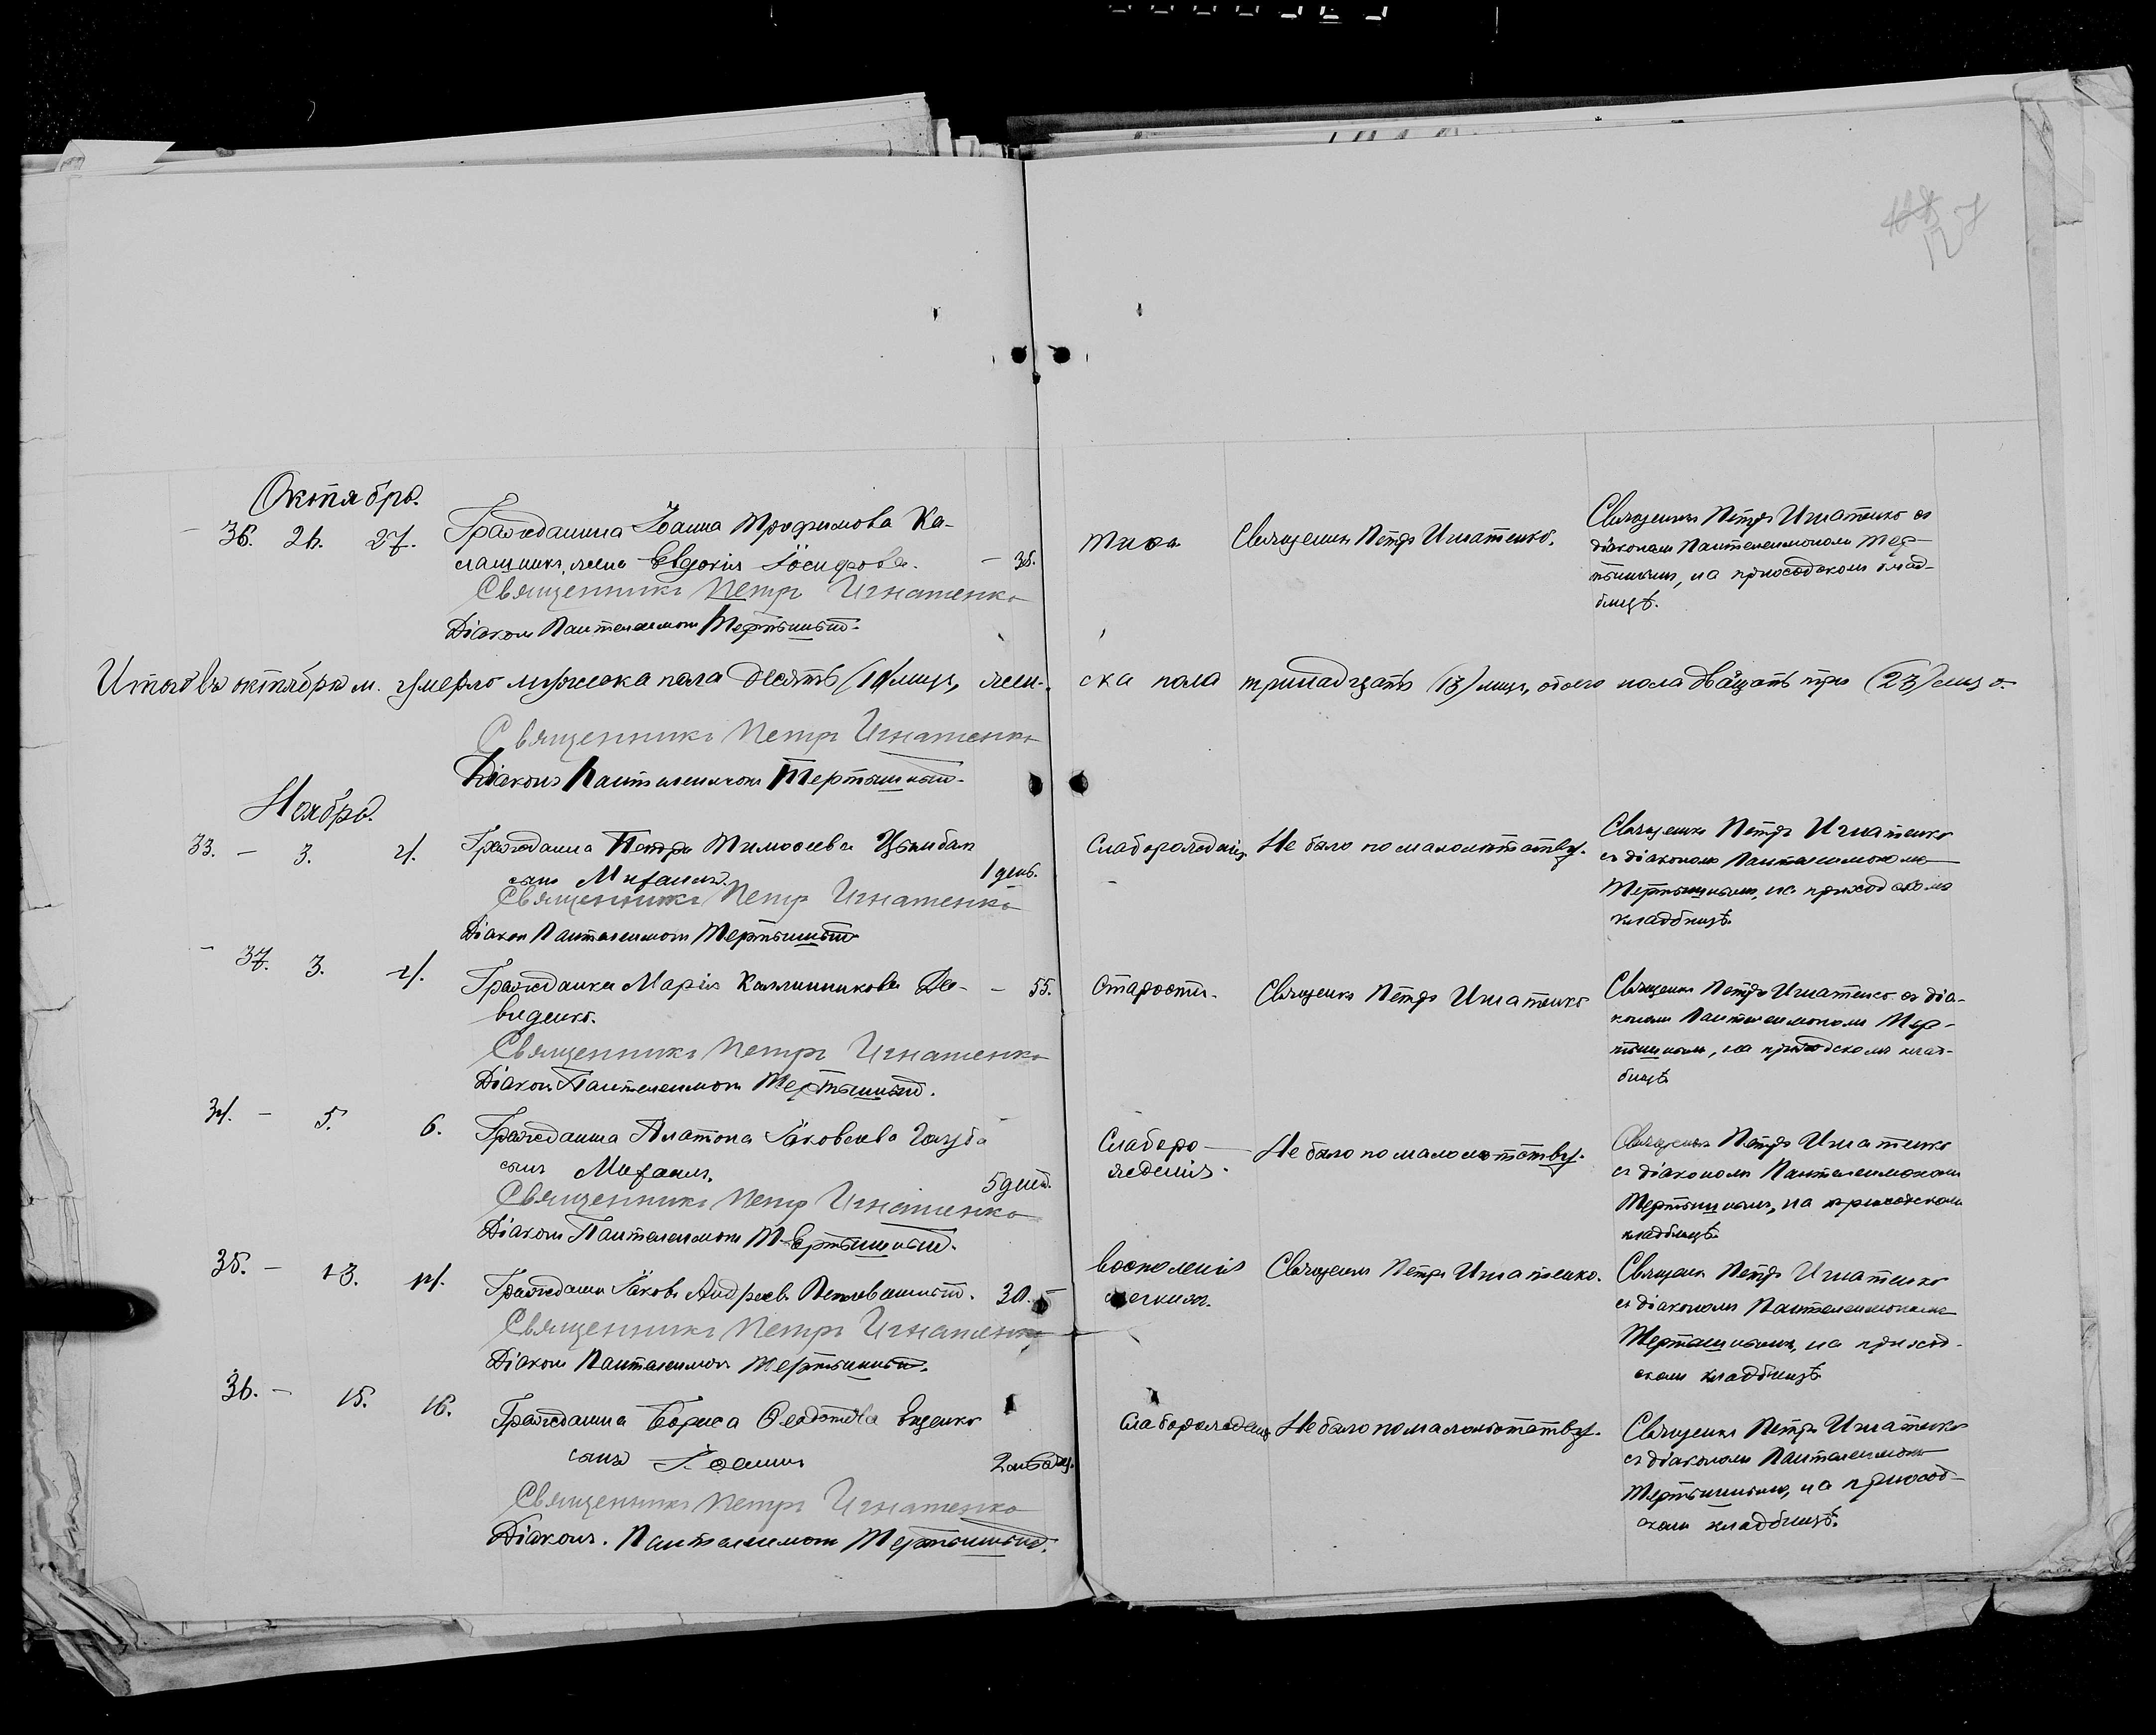 127
Октябрь.
36. 26. 27. Гражданина Іоанна Трофимова Ка-
лашника, жена Евдокія Іосифова. 38.
Священникъ Петръ Игнатенко
Діаконъ Пантелеимонъ Тертышный.
Тифа. Священникъ Петръ Игнатенко.
Священникъ Петръ Игнатенко съ
діакономъ Пантелеимономъ Тер-
тышнымъ, на приходскомъ клад-
бищѣ.
Итого въ октябрѣ м. умерло мужеска пола десять (10) лицъ, жен-
ска пола тринадцать (13) лицъ, обоего пола двадцать три (23) лица.
Священникъ Петръ Игнатенко
Діаконъ Пантелеимонъ Тертышный.
Ноябрь.
33. – 3. 4. Гражданина Петра Тимоѳеева Цымбал
сынъ Михаилъ. 1 день.
Священникъ Петръ Игнатенко
Діаконъ Пантелеимонъ Тертышный
Слаборожденія Не было по малолѣтству.
Священникъ Петръ Игнатенко
съ діакономъ Пантелеимономъ
Тертышнымъ, на приходскомъ
кладбищѣ.
– 37. 3. 4. Гражданка Марія Каллиникова Да- – 55.
виденко.
Священникъ Петръ Игнатенко
Діаконъ Пантелеимонъ Тертышный.
Старости. Священникъ Петръ Игнатенко
Священникъ Петръ Игнатенко съ діа-
кономъ Пантелеимономъ Тер-
тышнымъ, на приходскомъ клад-
бищѣ.
34. – 5. 6. Гражданина Платона Іаковлева Голуба
сынъ Михаилъ. 5 дней.
Священникъ Петръ Игнатенко
Діаконъ Пантелеимонъ Тертышный.
Слаборо-
жденія. Не было по малолѣтству.
Священникъ Петръ Игнатенко
съ діакономъ Пантелеимономъ
Тертышнымъ, на приходскомъ
кладбищѣ.
35. – 13. 14. Гражданинъ Іаковъ Андреевъ 30. –
Священникъ Петръ Игнатенко
Діаконъ Пантелеимонъ Тертышный.
воспаленія
легкихъ. Священникъ Петръ Игнатенко.
Священникъ Петръ Игнатенко
съ діакономъ Пантелеимономъ
Тертышнымъ, на приход-
скомъ кладбищѣ.
36. – 15. 16. Гражданина Бориса Ѳедотова Еценко
сынъ Іоаннъ
Священникъ Петръ Игнатенко
Діаконъ. Пантелеимонъ Тертышный.
Слаборожденія Не было по малолѣтству.
Священникъ Петръ Игнатенко
съ діакономъ Пантелеимон
Тертышнымъ, на приход-
скомъ кладбищѣ.